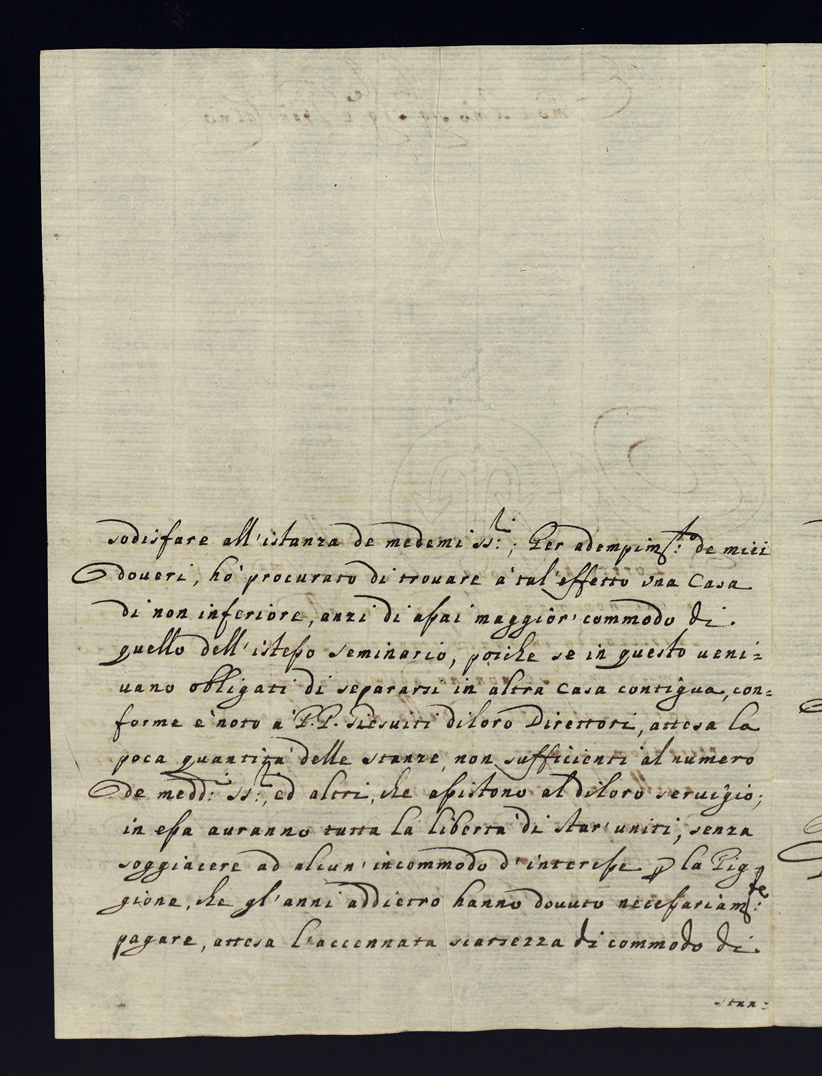 sodisfare all'istanza de medemi ss:ri; Per adempim:to de miei
doueri, hò procurato di trouare à tal'effetto vna Casa
di non inferiore, anzi di assai maggior' commodo di
quello dell'istesso seminario, poiche se in questo ueni=
uano obbligati di separarsi in altra Casa contigua, con=
forme è noto à P.P. Giesuiti diloro Direttori, attesa la
poca quantità delle stanze, non sufficienti al numero
de medd:i ss:ri, ed altri, che assistono al diloro seruigio;
in essa auranno tutta la libertà di star'uniti, senza
soggiacere ad alcun' incommodo d'interesse p la Pig=
gione, che gl'anni addietro hanno douuto necessariam:te
pagare, attesa l'accennata scarsezza di commodo di
stan=